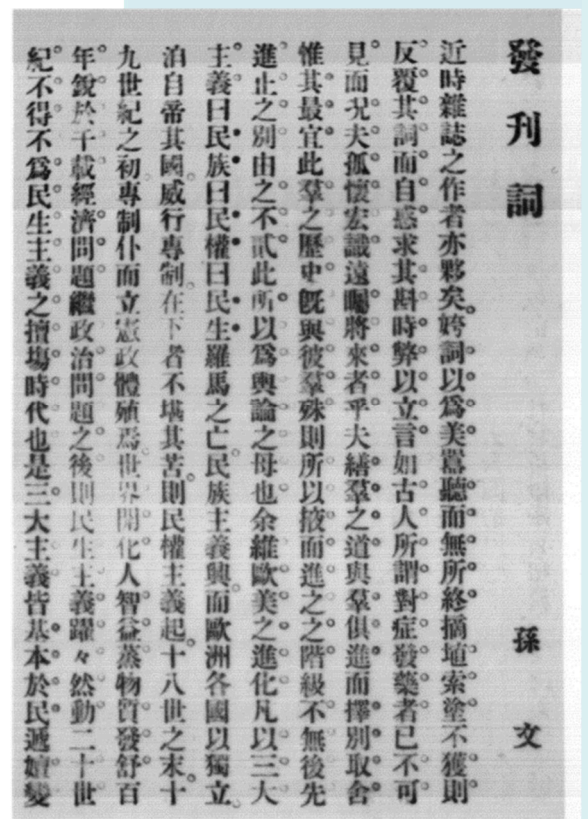 發刊詞
孫文
近時雜誌之作者亦夥矣。姱詞以爲美囂聽而無所終摘埴索塗不獲則
反覆其詞而自惑求其斟時弊以立言如古人所謂對症發藥者已不可
見而况夫孤懷宏識遠矚將來者乎夫繕羣之道與羣俱進而擇別取舍
惟其最宜此羣之歷史旣與彼羣殊則所以掖而進之之階級不無後先
進止之別由之不貳此所以爲輿論之母也余維歐美之進化凡以三大
主義曰民族曰民權曰民生羅馬之亡民族主義興而歐洲各國以獨立。
泊自帝其國。威行專制。在下者不堪其苦。則民權主義起。十八世之末。十
九世紀之初專制仆而立憲政體殖焉世界開化人智益蒸物質發舒百
年銳於千載經濟問題繼政治問題之後則民生主義躍々然動二十世
紀不得不爲民生主義之擅塲時代也是三大主義皆基本於民遞嬗變